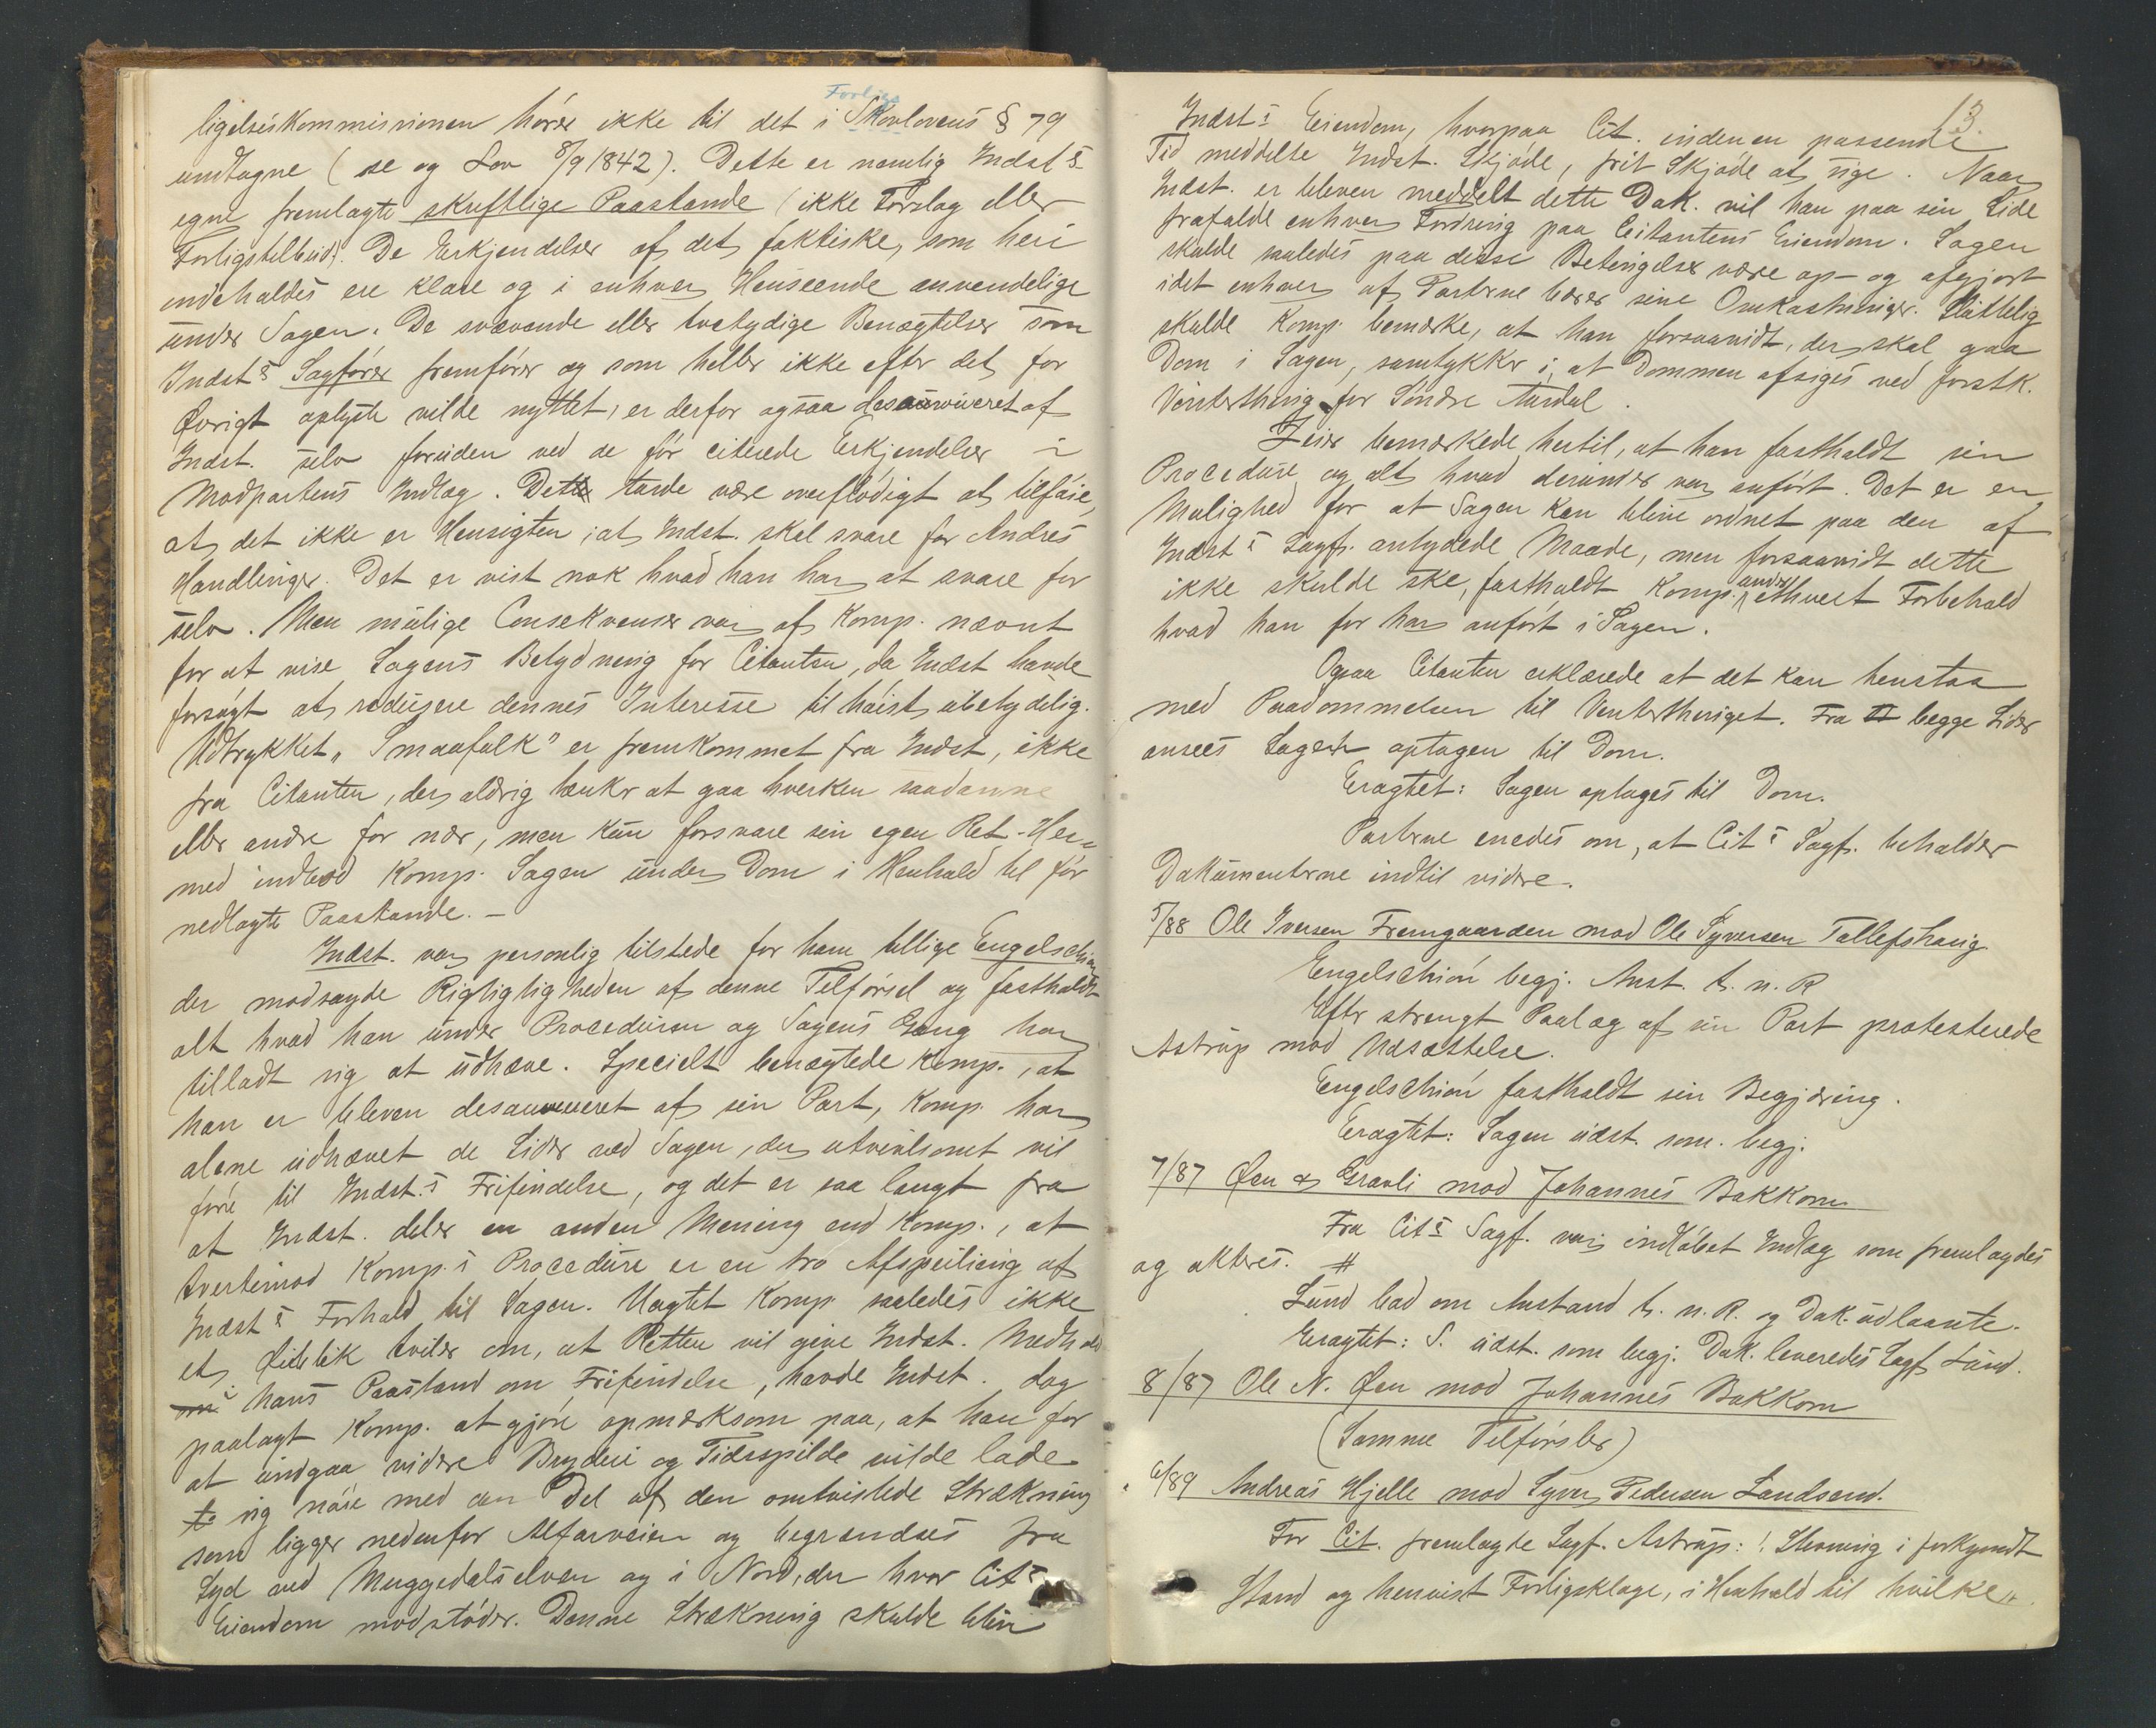 Forligs
ligelseskommissionen hører ikke til det i Skovlovens § 79
undtagne (se og Lov 8/9 1842). Dette er nemlig Indst.s
egne fremlagte skriftlige Paastande (ikke Forslag eller
Forligstilbud). De Erkjendelser af det faktiske, som heri
indeholdes ere klare og i enhver Henseende anvendelige
under Sagen. De svævende eller tvetydige Benægtelser som
Indsts Sagfører fremfører og som heller ikke efter det for
Øvrigt oplyste vilde nyttet, er derfor ogsaa desauvoueret af
Indst. selv foruden ved de før citerede Erkjendelser i
Modpartens Indlæg. Dette turde være overflødigt at tilføie,
at det ikke er Hensigten, at Indst. skal svare for Andres
Handlinger. Det er vist nok hvad han har at svare for
selv. Men mulige Consekvenser var af Komp. nævnt
for at vise Sagens Betydning for Citanten, da Indst havde
forsøgt at reducere dennes Interesse til høist ubetydelig.
Udtrykket "Smaafolk" er fremkommet fra Indst, ikke
fra Citanten, der aldrig tænker at gaa hverken saadanne
eller andre for nær, men kun forsvare sin egen Ret. Her=
med indlod Komp. Sagen under Dom i Henhold til før
nedlagte Paastande. —
Indst. var personlig tilstede for ham tillige Engelschiøn
der modsagde Rigtigligheden af denne Tilførsel og fastholdt
alt hvad han under Proceduren og Sagens Gang har
tilladt sig at udhæve. Specielt benægtede Komp., at
han er bleven desauvoueret af sin Part, Komp. har
alene udhævet de Sider ved Sagen, der utvivlsomt vil
føre til Indst.s Frifindelse, og det er saa langt fra
at Indst. deler en anden Mening end Komp., at
tvertimod Komp.s Procedure er en tro Afspeiling af
Indsts Forhold til Sagen. Uagtet Komp saaledes ikke
et Øieblik tviler om, at Retten vil give Indst. Medhold
i hans Paastand om Frifindelse, havde Indst. dog
paalagt Komp. at gjøre opmærksom paa, at han for
at undgaa videre Bryderi og Tidsspilde vilde lade
sig nøie med den Del af den omtvistede Strækning
som ligger nedenfor Alfarveien og begrændses fra
Syd ved Muggedalselven og i Nord, der hvor Cits
Eiendom modstøder. Denne Strækning skulde blive
13.
Indsts Eiendom, hvorpaa Cit. inden en passende
Tid meddelte Indst. Skjøde, frit Skjøde at sige. Naar
Indst. er bleven meddelt dette Dok. vil han paa sin Side
frafalde enhver Fordring paa Citantens Eiendom. Sagen
skulde saaledes paa disse Betingelser være op- og afgjort
idet enhver af Parterne bærer sine Omkostninger. Sluttelig
skulde Komp. bemærke, at han forsaavidt, der skal gaa
Dom i Sagen, samtykker i, at Dommen afsiges ved førstk.
Vinterthing for Søndre Aurdal.
Zeier bemærkede hertil, at han fastholdt sin
Procedure og alt hvad derunder var anført. Det er en
Mulighed for at Sagen kan blive ordnet paa den af
Indsts Sagf. antydede Maade, men forsaavidt dette
ikke skulde ske, fastholdt Komp. under ethvert Forbehold
hvad han før har anført i Sagen.
Ogsaa Citanten erklærede at det kan henstaa
med Paadommelsen til Vinterthinget. Fra begge Sider
ansees Sagen optagen til Dom.
Eragtet: Sagen optages til Dom.
Parterne enedes om, at Cits Sagf. beholder
Dokumenterne indtil videre.
5/88 Ole Iversen Fremgaarden mod Ole Syversen Tollefshaug
Engelschiøn begj. Anst. t. n. R
Efter strengt Paalæg af sin Part protesterede
Astrup mod Udsættelse.
Engelschiøn fastholdt sin Begjæring.
Eragtet: Sagen udst. som begj.
7/87 Øen & Gravli mod Johannes Bakkom
Fra Cits Sagf. var indløbet Indlæg som fremlagdes
og akteres. #
Lund bad om Anstand t. n. R. og Dok. udlaante.
Eragtet: S. udst. som begj. Dok. leveredes Sagf Lund.
8/87 Ole N. Øen mod Johannes Bakkom
(Samme Tilførsler)
6/89 Andreas Hjelle mod Syver Pedersen Sandsend.
For Cit. fremlagde Sagf. Astrup: 1. Stevning i forkyndt
Stand og henvist Forligsklage, i Henhold til hvilke